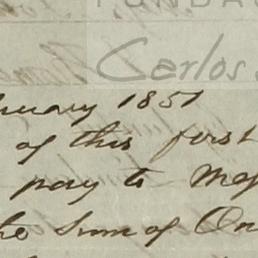 FUNDAC
Carlos
nuary 1851
of this first
pay to Mess
the Sum of On